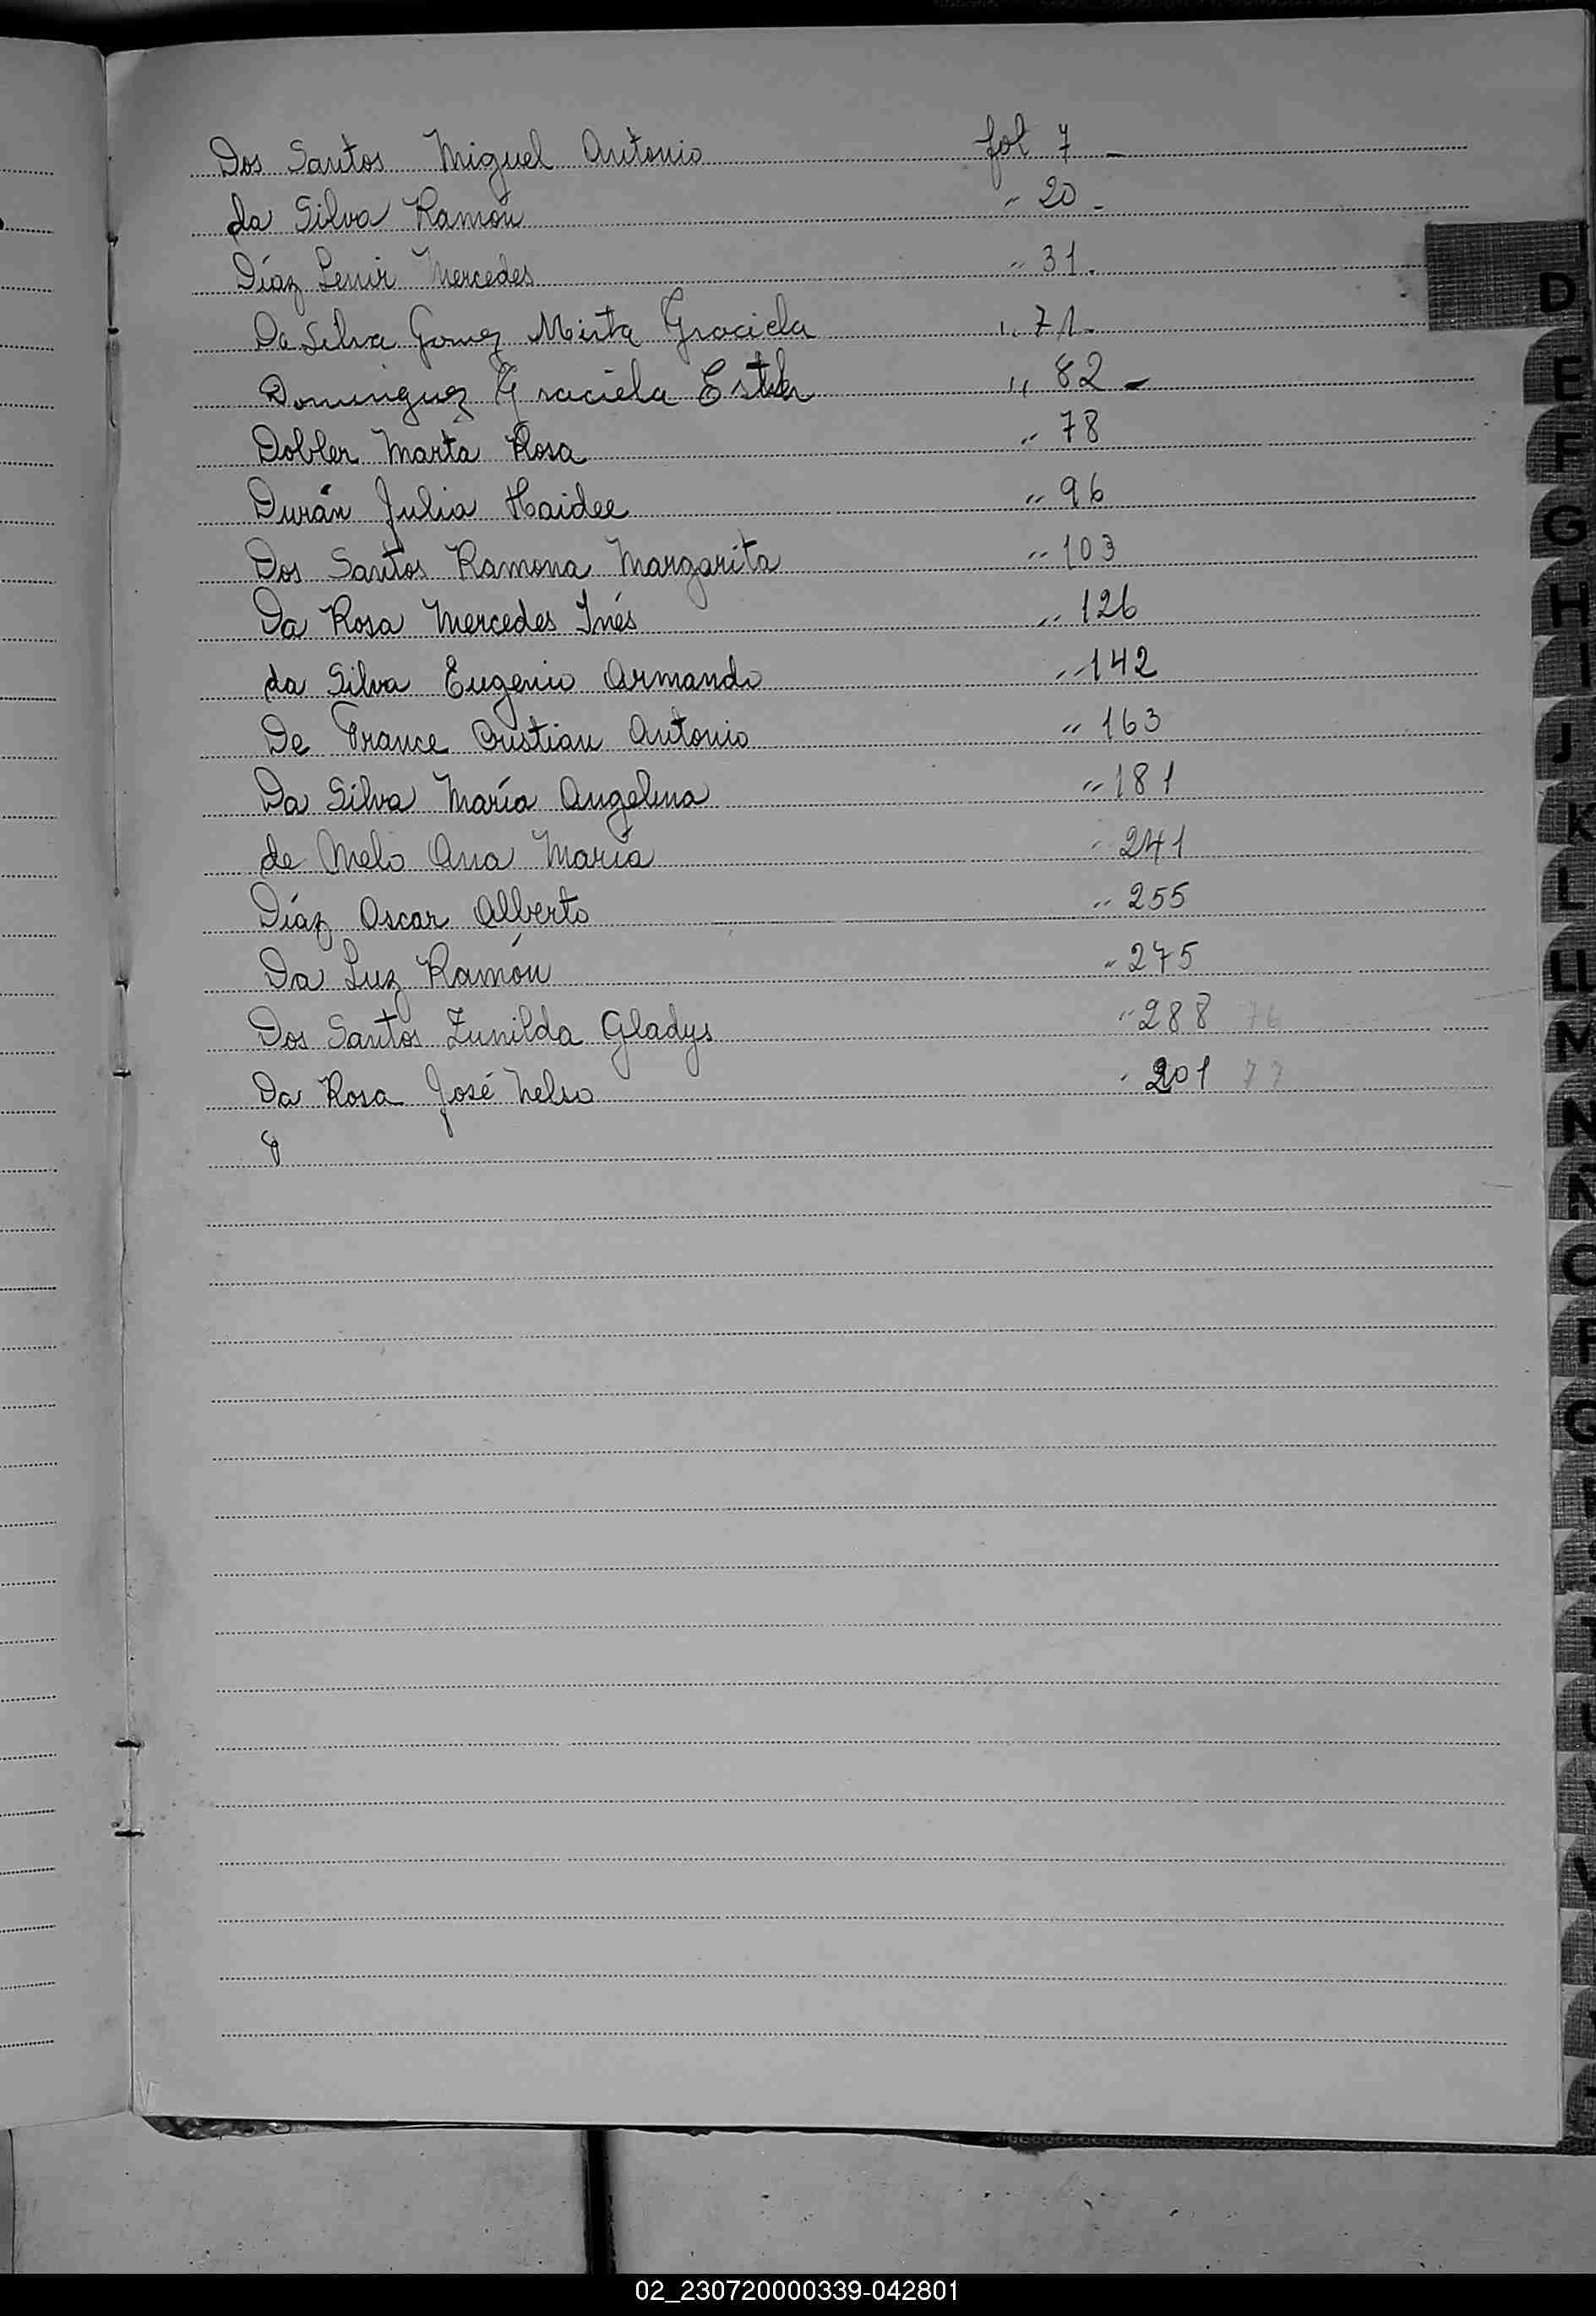 Dos Santos Miguel Antonio fol 7 -
da Silva Ramón " 20 -
Díaz Lenir Mercedes " 31.
Da Silva Gomez Mirta Graciela " 71.
Dominguez Graciela Ester " 82 -
Dobler Marta Rosa " 78
Durán Julia Haidee " 96
Dos Santos Ramona Margarita " 103
Da Rosa Mercedes Inés " 126
da Silva Eugenio Armando " 142
De France Cristian Antonio " 163
Da Silva María Angelina " 181
de Melo Ana María " 241
Díaz Oscar Alberto " 255
Da Luz Ramón " 275
Dos Santos Zunilda Gladys " 288 76
Da Rosa José Nelso " 201 77
D
E
F
G
H
I
J
K
L
LL
M
N
02_230720000339-042801